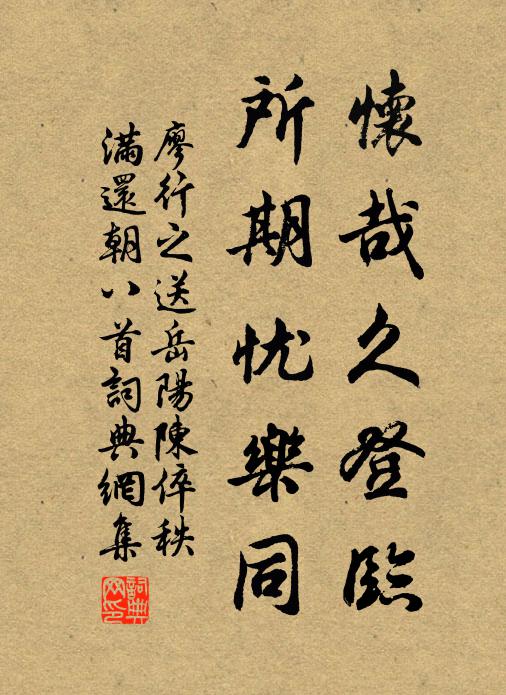 懷哉久登臨
所期忧樂同
廖行之送岳陽陳倅秩
滿還朝八首詞典網集
詞典网印